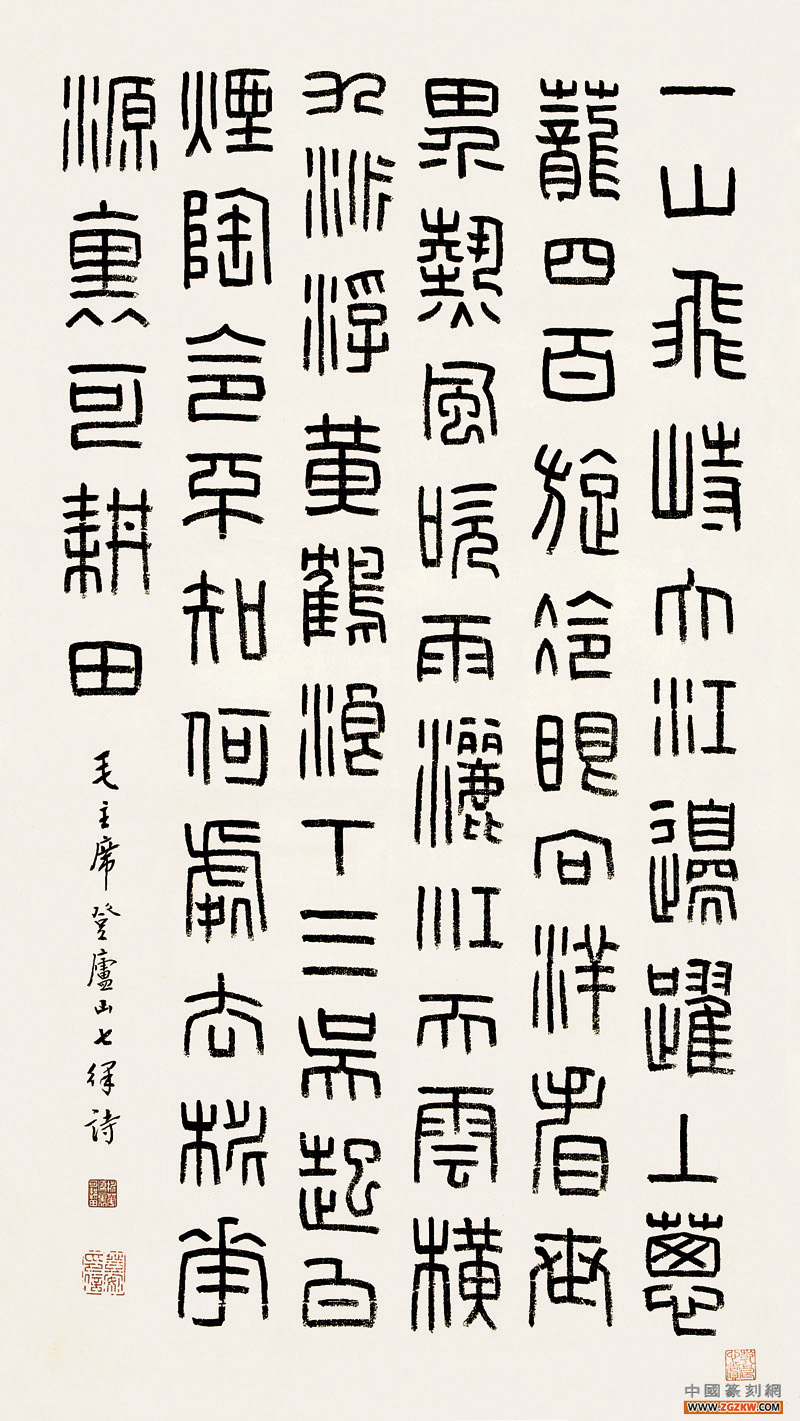 一山飛峙大江邊躍上蔥
蘢四百旋冷眼向洋看世
界熱風吹雨灑江天雲橫
九派浮黃鶴浪下三吳起白
煙陶令不知何處去桃華
源裏可耕田
毛主席登廬山七律詩
中國篆刻網
WWW.ZGZKW.COM